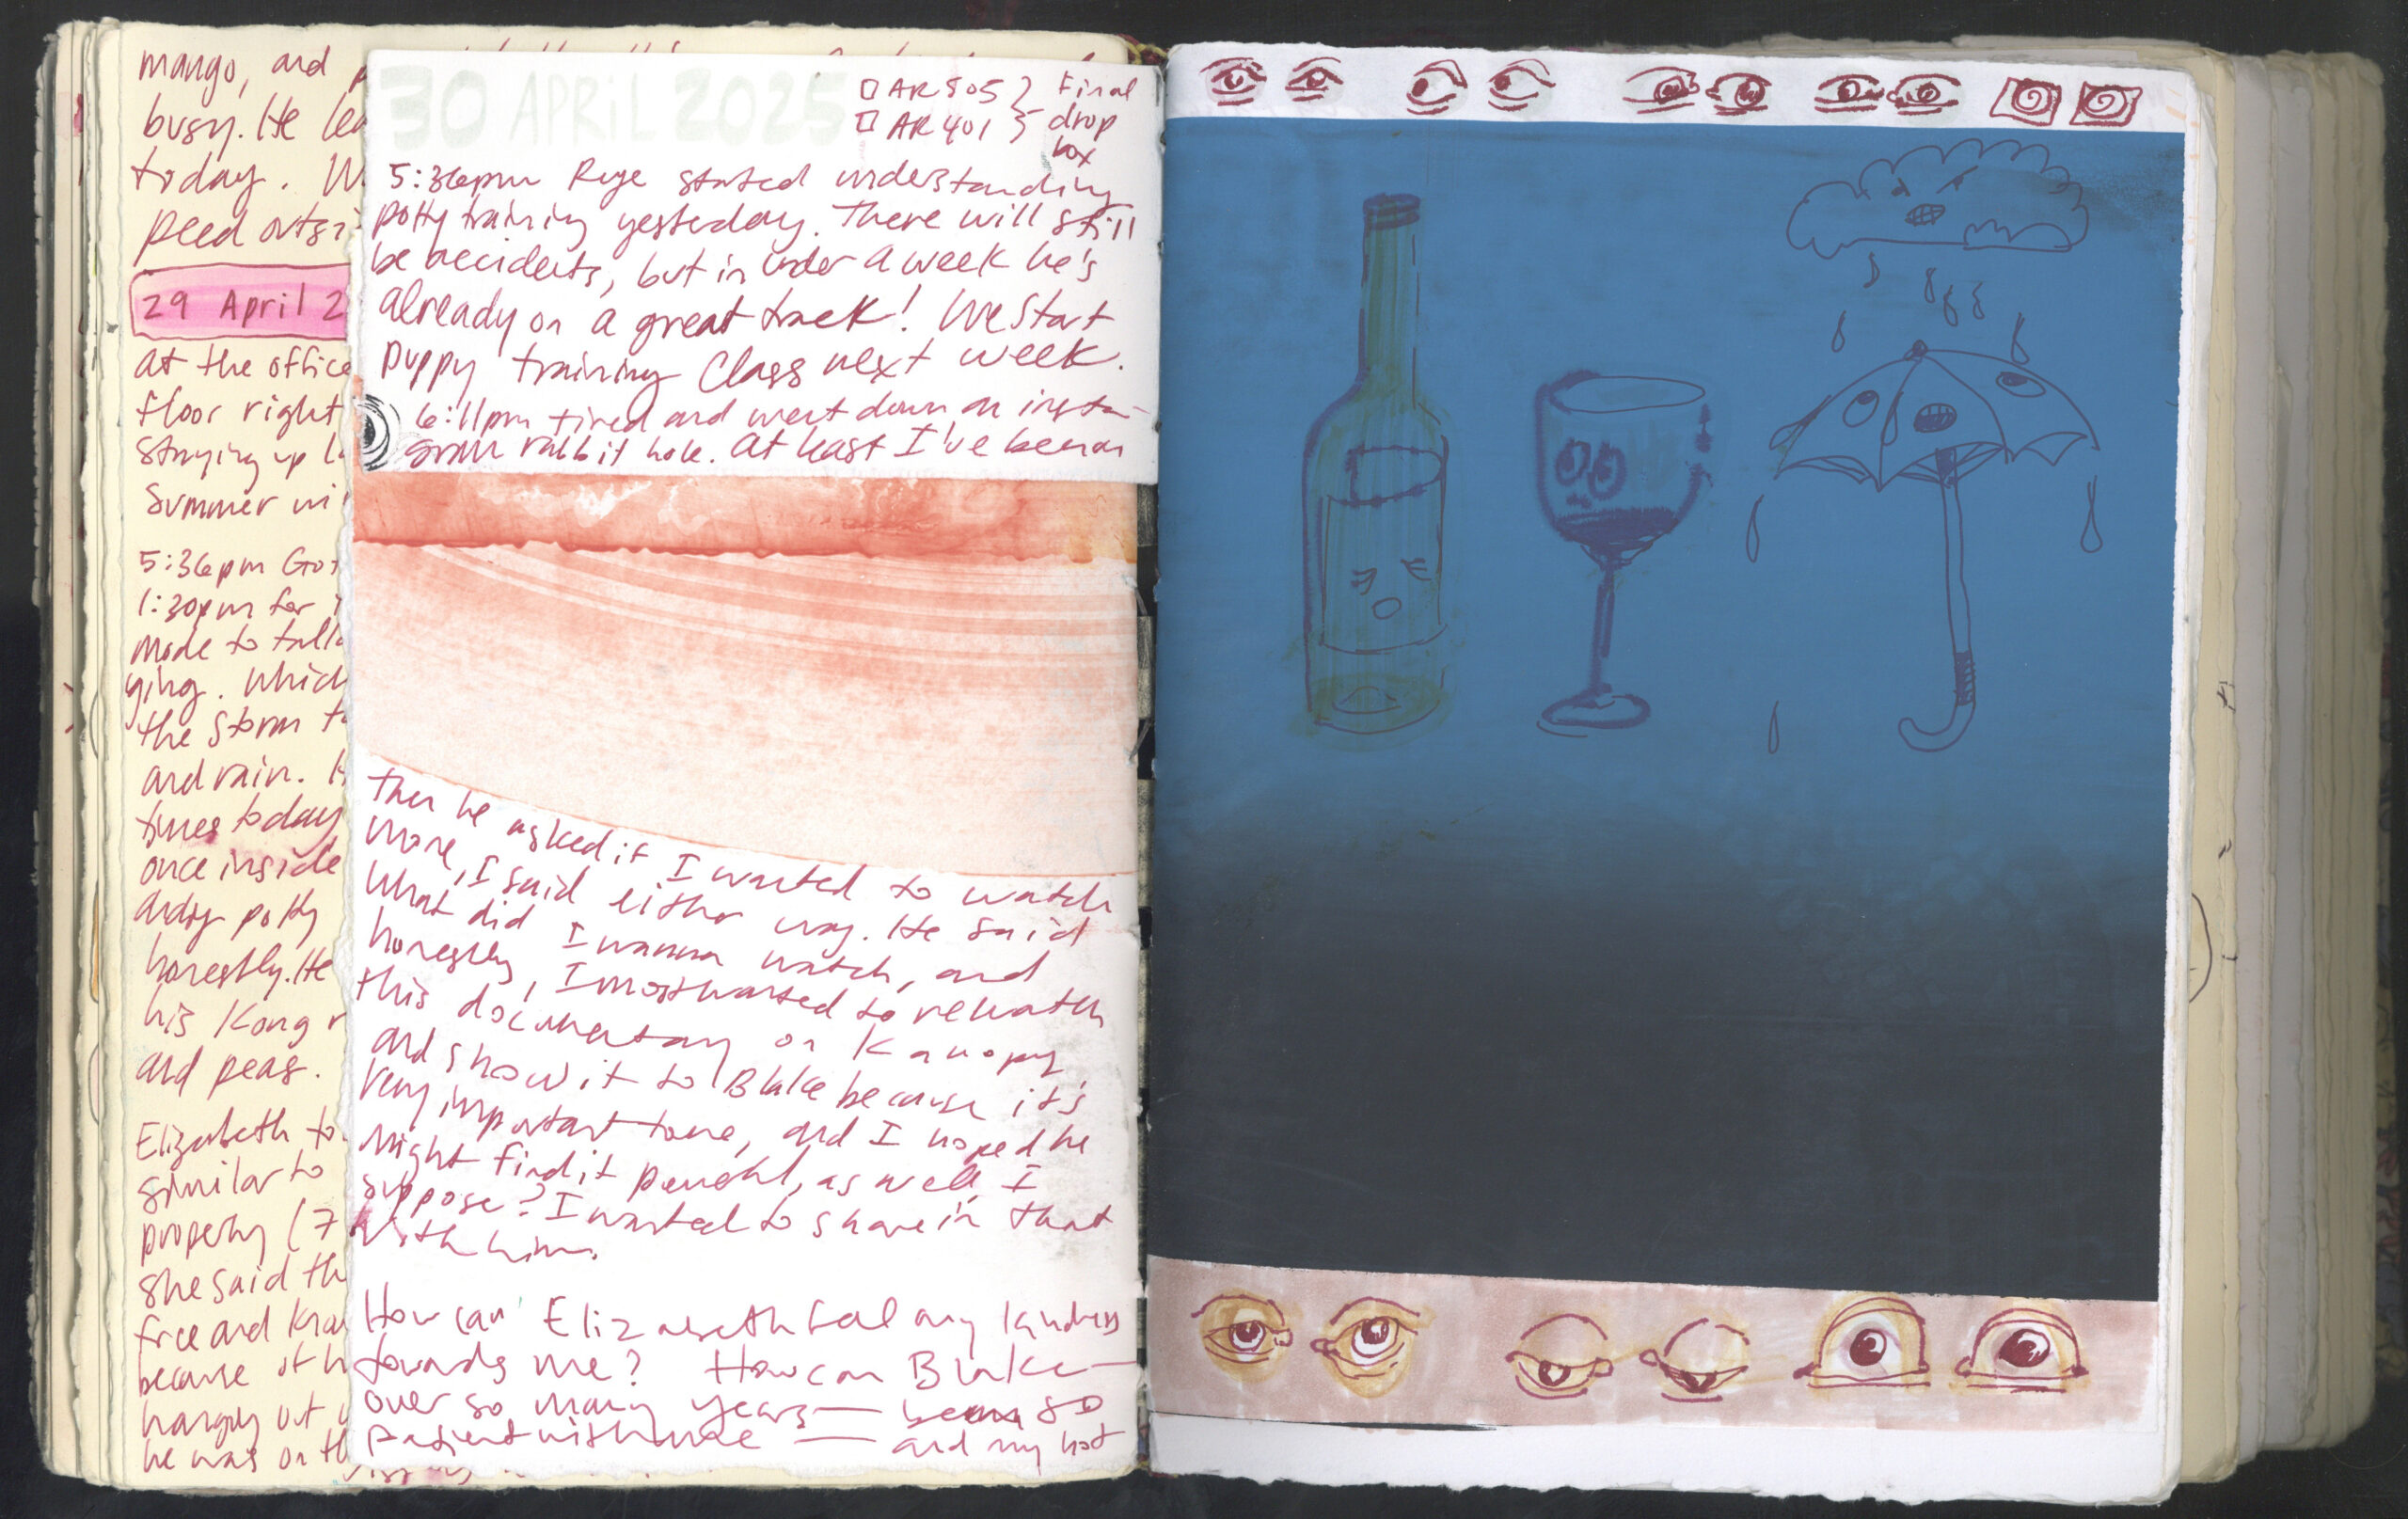 mango, and
busy. He
today.
peed outsi
29 April 2
at the office
floor right
staying up
summer wi
5:36pm Got
1:30pm for
mode to talk
ying. Which
the storm
and rain.
times today
once inside
potty
honestly. He
his Kong
and peas.
Elizabeth to
similar to
property (7
she said th
free and
because of h
out
he was on th
30 APRIL 2025
AR 805 } Final
AR 401 } drop
box
5:36pm Rye started understanding
potty training yesterday. There will still
be accidents, but in under a week he's
already on a great track! We start
puppy training class next week.
6:11pm tired and went down an insta-
gram rabbit hole. At least I've been
then he asked if I wanted to watch
more, I said either way. He said
what did I wanna watch, and
honestly, I most wanted to rewatch
this documentary on Kanopy
and show it to Blake because it's
very important to me, and I hoped he
might find it, as well, I
suppose? I wanted to share in that
with him.
How can Elizabeth feel any kindness
towards me? How can Blake —
over so many years — been so
patient with me — and my hot